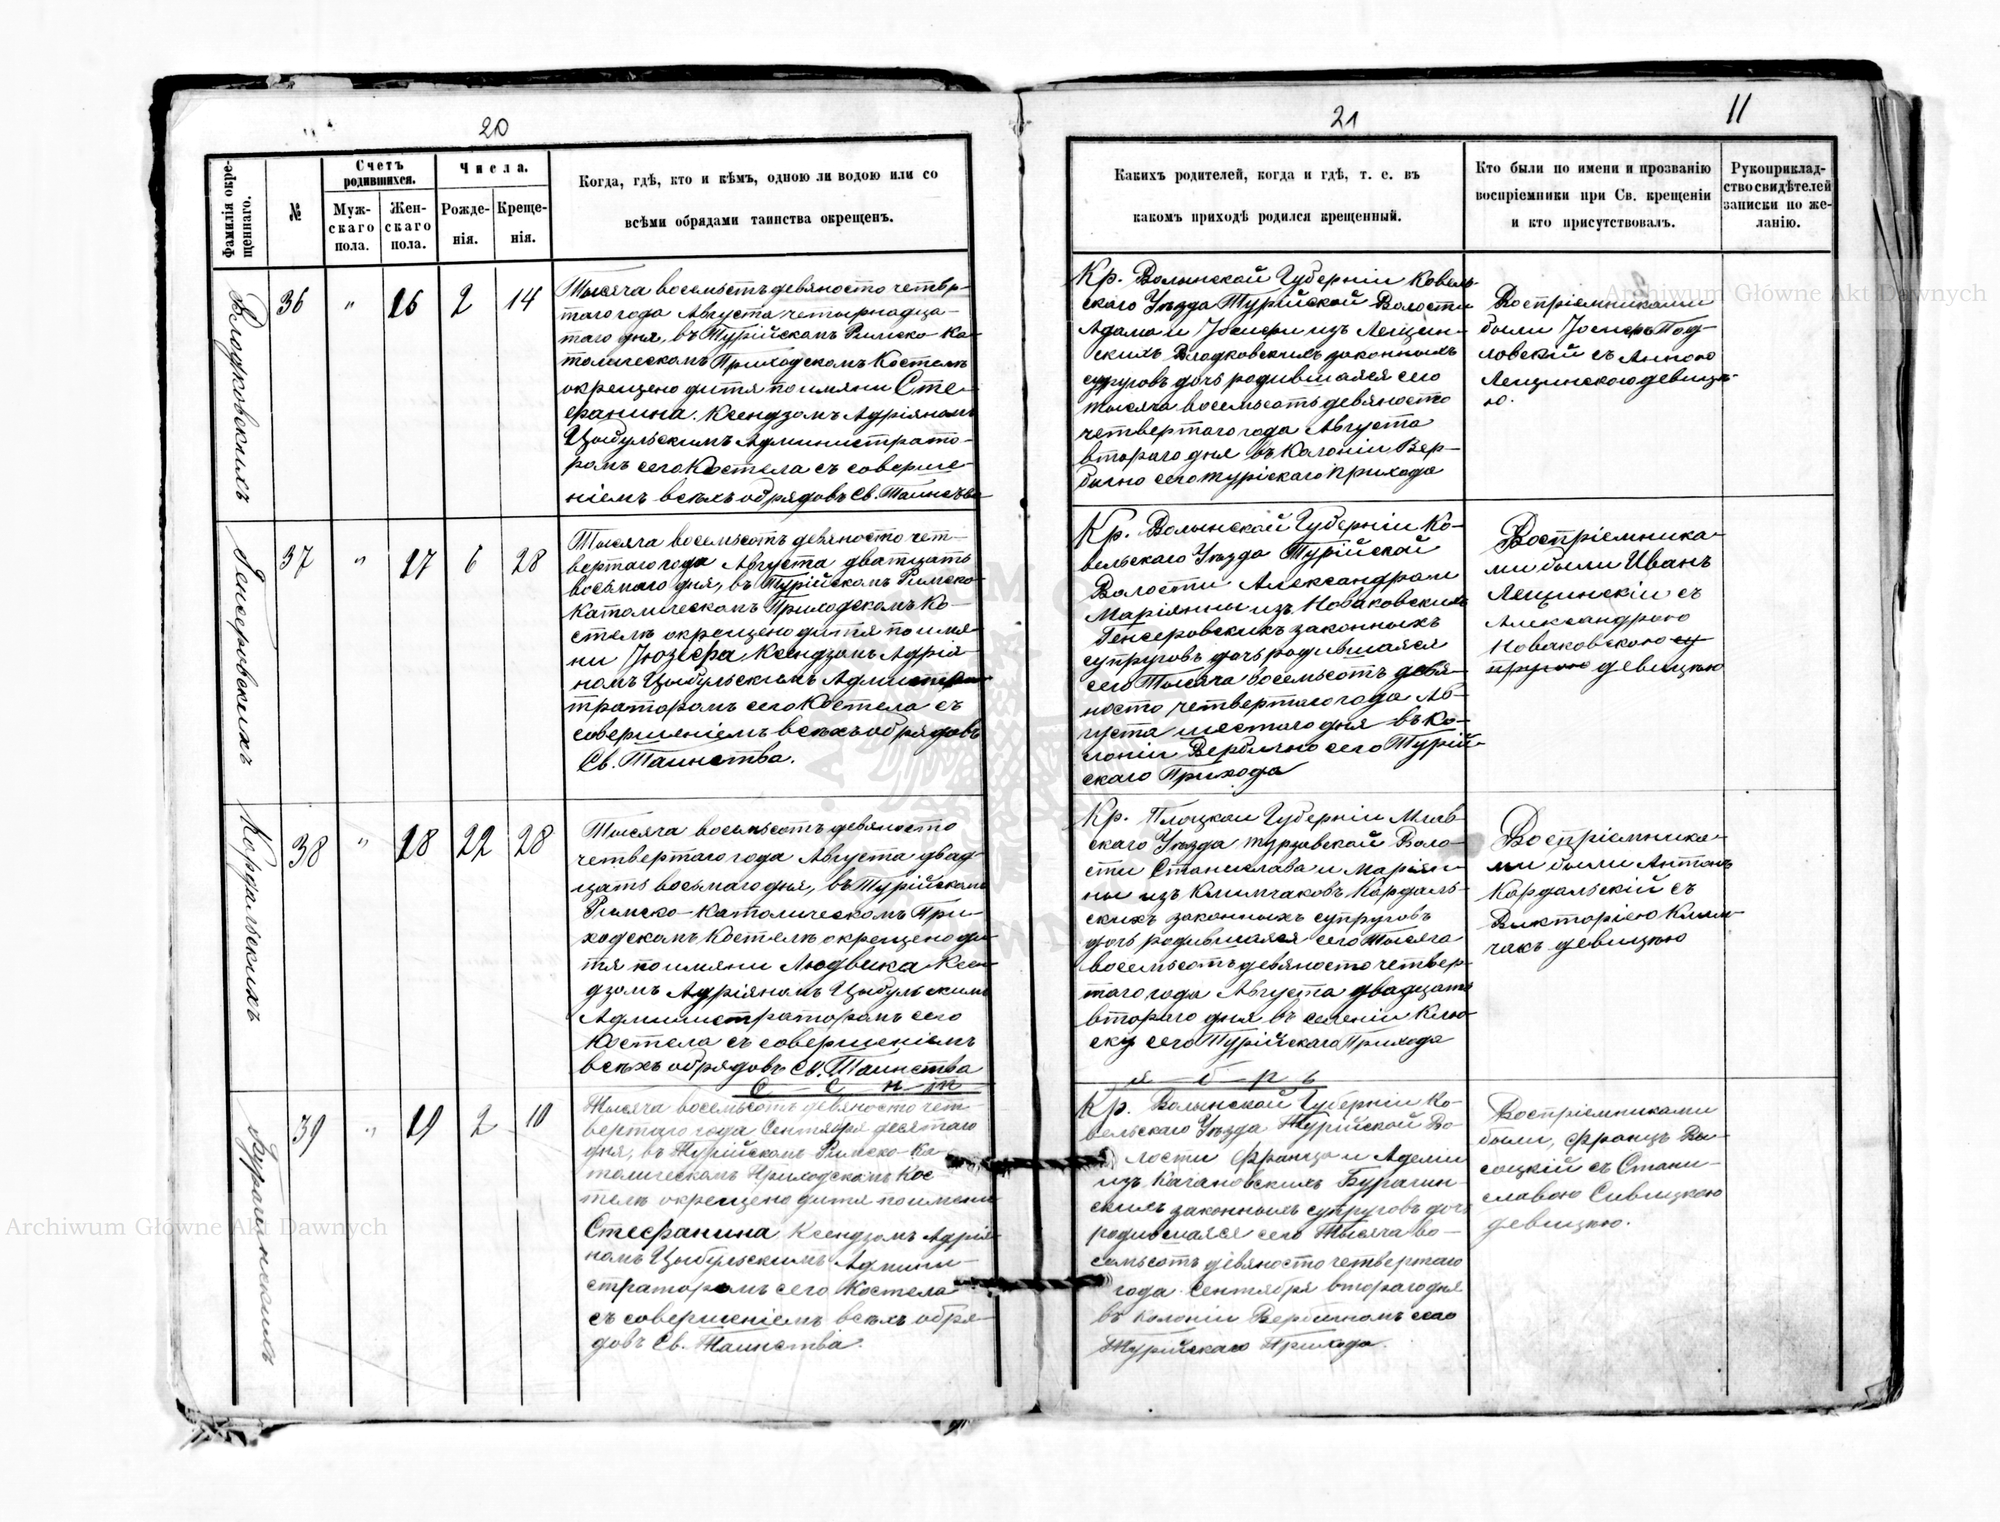 20
Фамилія окре-
щеннаго.
№
Счетъ
родившихся.
Муж-
скаго
пола.
Жен-
скаго
пола.
Числа.
Рожде-
нія.
Креще-
нія.
Когда, гдѣ, кто и кѣмъ, одною ли водою или со
всѣми обрядами таинства окрещенъ.
Влодковскихъ
36 " 16 2 14
Тысяча восемьстъ девяносто четвр-
таго года Августа четырнадца-
таго дня, въ Турійскомъ Римско-Ка-
толическомъ Приходскомъ Костелѣ
окрещено дитя по имяни Сте-
фанина. Ксендзомъ Адріяномъ
Цыбульскимъ Администрато-
ромъ сего Костела съ соверше-
ніемъ всѣхъ обрядовъ Св. Таинства
Генсеровскихъ
37 " 17 6 28
Тысяча восемьсотъ девяносто чет-
вертаго года Августа дватцать
восьмаго дня, въ Турійскомъ Римско-
Католическомъ Приходскомъ Ко-
стелѣ окрещено дитя по имя-
ни Юзефа, Ксендзомъ Адрія-
номъ Цыбульскимъ
траторомъ сего Костела съ
совершеніемъ всѣхъ обрядовъ
Св. Таинства.
Кордальскихъ
38 " 18 22 28
Тысяча восемьсотъ девяносто
четвертаго года Августа двад-
цать восьмаго дня, въ Турійскомъ
Римско-Католическомъ При-
ходскомъ Костелѣ окрещено ди-
тя по имяни Людвика Ксен-
дзомъ Адріяномъ Цыбульскимъ
Администраторомъ сего
Костела съ совершеніемъ
всѣхъ обрядовъ Св. Таинства
С е н т
Бурагинскихъ
39 " 19 2 10
Тысяча восемьсотъ девяносто чет-
вертаго года Сентября десятаго
дня, въ Турійскомъ Римско-Ка-
толическомъ Приходскомъ Кос-
телѣ окрещено дитя по имени
Стефанина, Ксендзомъ Адрія-
номъ Цыбульскимъ Админи-
страторомъ сего Костела
съ совершеніемъ всѣхъ обря-
довъ Св. Таинства.
21
11
Какихъ родителей, когда и гдѣ, т. е. въ
какомъ приходѣ родился крещенный.
Кто были по имени и прозванію
воспріемники при Св. крещеніи
и кто присутствовалъ.
Рукоприклад-
ство свидѣтелей
записки по же-
ланію.
Кр. Волынской Губерніи Ковель-
скаго Уѣзда Турійской Волости
Адама и Іосифы изъ Лещин-
скихъ Влодковскихъ законныхъ
супруговъ дочь родившаяся сего
тысяча восемьсотъ девяносто
четвертаго года Августа
втораго дня въ Колоніи Вер-
бично сего турійскаго прихода
Воспріемниками
были Іосифъ Под-
ловскій съ Анною
Лещинскою девице-
ю.
Кр. Волынской Губерніи Ко-
вельскаго Уѣзда Турійской
Волости Александра и
Маріянны изъ Новаковскихъ
Генсеровскихъ законныхъ
супруговъ дочь родившаяся
сего Тысяча восемьсотъ девя-
носто четвертаго года Ав-
густа шестаго дня въ Ко-
лоніи Вербично сего Турій-
скаго Прихода
Воспріемника-
ми были Иванъ
Лещинскій съ
Александрою
Новаковскою су-
пругою девицею
Кр. Плоцкой Губерніи Млав-
скаго Уѣзда турзовской Воло-
сти Станислава и Маріян-
ны изъ Климчаковъ Кордаль-
скихъ законныхъ супруговъ
дочь родившаяся сего Тысяча
восемьсотъ девяносто четвер-
таго года Августа двадцать
втораго дня въ селеніи Клю-
ску сего Турійскаго Прихода
Воспріемника-
ми были Антонъ
Кордальскій съ
Викторіею Клим-
чакъ девицею
я б р ь
Кр. Волынской Губерніи Ко-
вельскаго Уѣзда Турійской Во-
лости Франца и Аделіи
изъ Качановскихъ Бурагин-
скихъ законныхъ супруговъ дочь
родившаяся сего Тысяча во-
семьсотъ девяносто четвертаго
года Сентября втораго дня
въ колоніи Вербичномъ сего
Турійскаго Прихода.
Воспріемниками
были, Францъ Вы-
соцкій съ Стани-
славою Сивицкою
девицею.
Archiwum Główne Akt Dawnych
Archiwum Główne Akt Dawnych